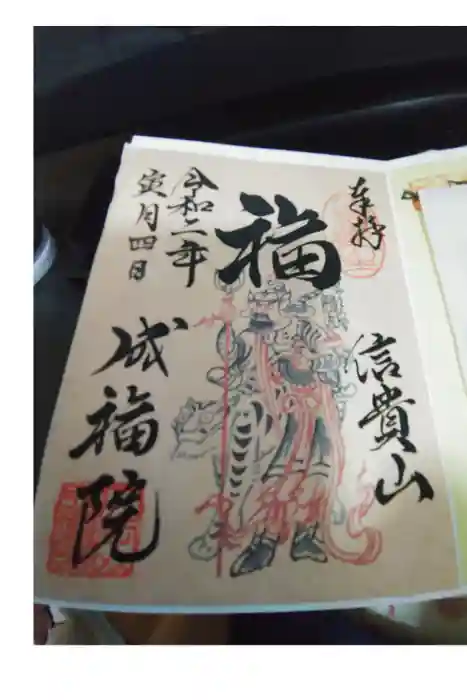 奉拝
信貴山
福
令和二年
寅月四日
成福院